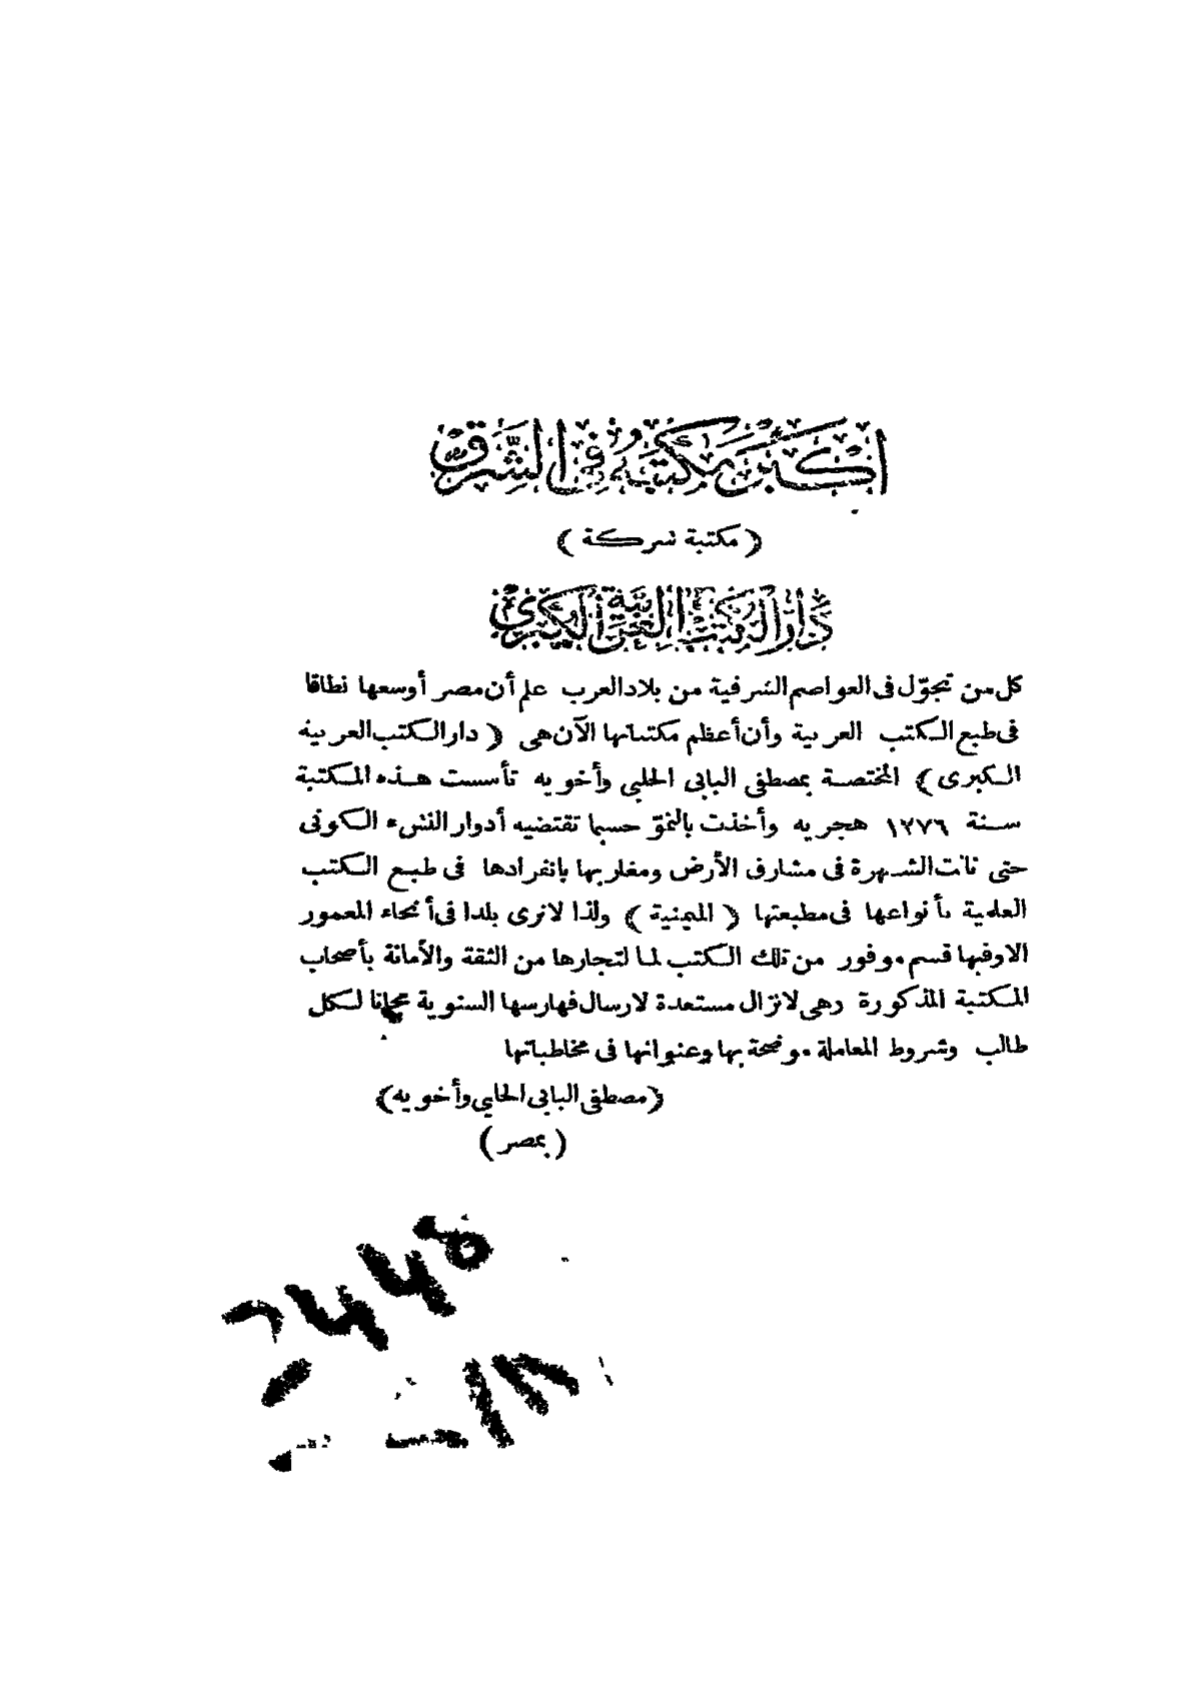 أكبر مكتبة في الشرق
(مكتبة شركة)
دار الكتب العربية الكبرى
كل من تجوّل فى العواصم الشرقية من بلاد العرب علم أن مصر أوسعها نطاقا
فى طبع الكتب العربية وأن أعظم مكتباتها الآن هى (دار الكتب العربية
الكبرى) المختصة بمصطفى البابى الحلبى وأخويه تأسست هذه المكتبة
سنة ١٢٧٦ هجريه وأخذت بالنموّ حسبما تقتضيه أدوار النشء الكونى
حتى نالت الشهرة فى مشارق الأرض ومغاربها بانفرادها فى طبع الكتب
العلمية بأنواعها فى مطبعتها (الميمنية) ولذا لانرى بلدا فى أنحاء المعمور
الا وفيها قسم موفور من تلك الكتب لما لتجارها من الثقة والأمانة بأصحاب
المكتبة المذكورة وهى لاتزال مستعدة لارسال فهارسها السنوية مجانا لكل
طالب وشروط المعاملة موضحة بها وعنوانها فى مخاطباتها
(مصطفى البابى الحلبى وأخويه)
(بمصر)